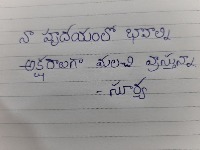 నా హృదయంలో భావాల్ని
అక్షరాలుగా మలచి వ్రాస్తున్నా
- సూర్య